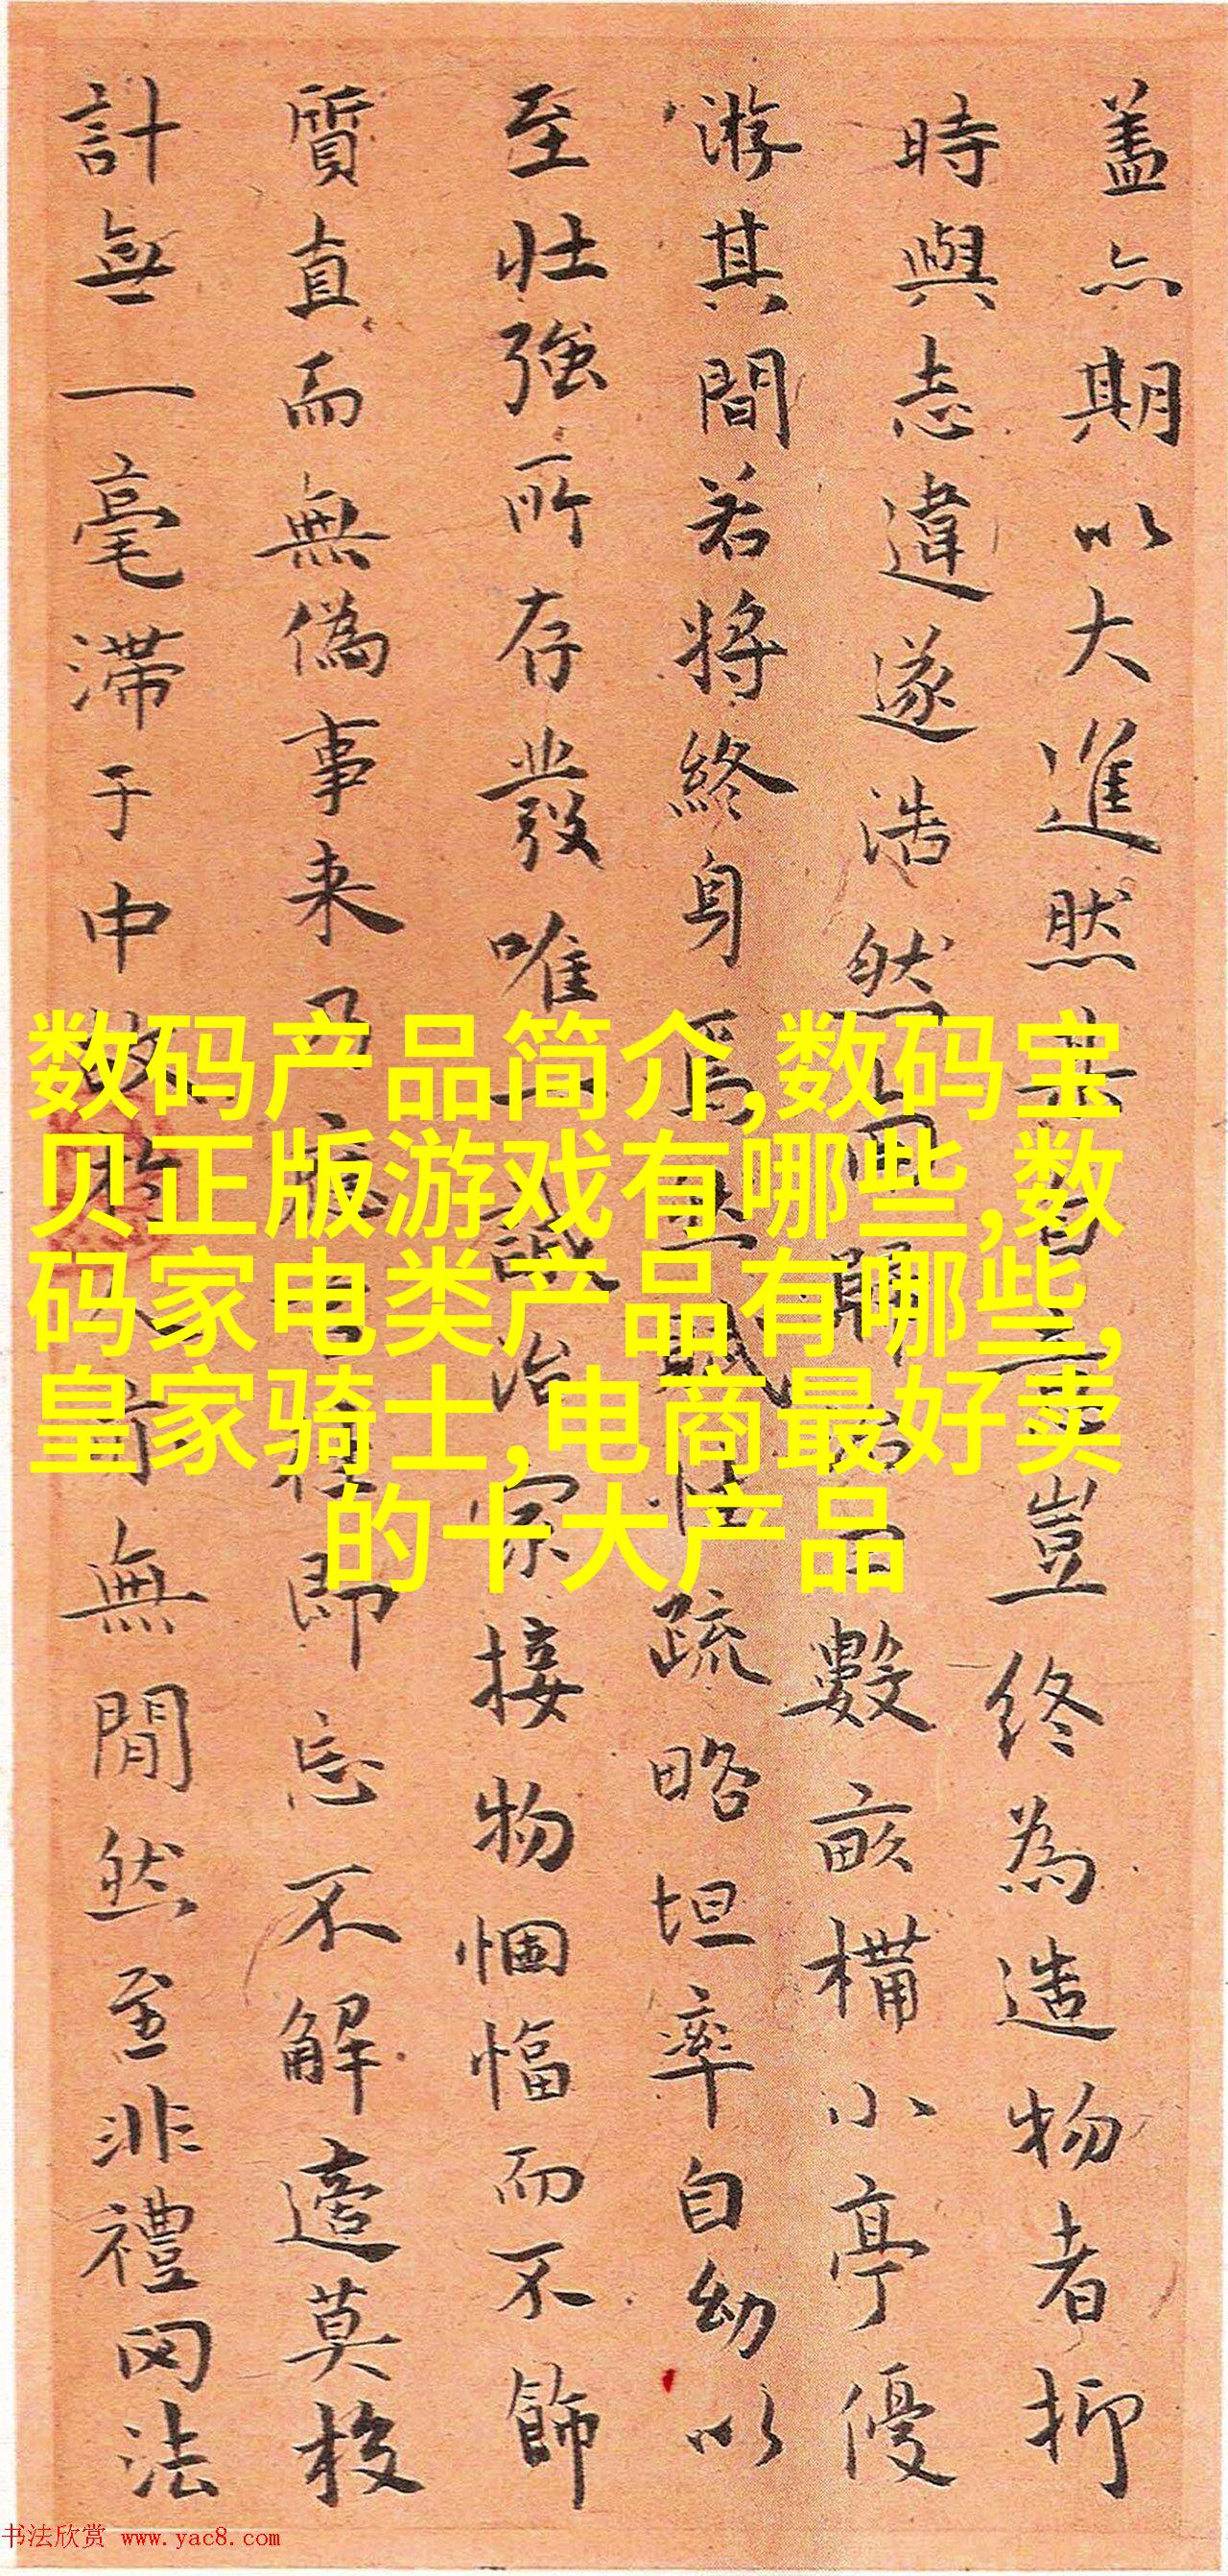 蓋亦期以大進然其
豈終為造物者抑
時與志違遂浩然
數畝構小亭優
游其間若將終身焉
疏略坦率自幼以
至壯強所存發唯
誠治
接物悃愊而不飾
質直而無偽事來乃
即忘不解遮莫校
計無一毫滯于中故
無間然至非禮罔法
数码产品简介,数码宝
贝正版游戏有哪些,数
码家电类产品有哪些,
皇家骑士,电商最好卖
的十大产品
书法欣赏 www.yac8.com